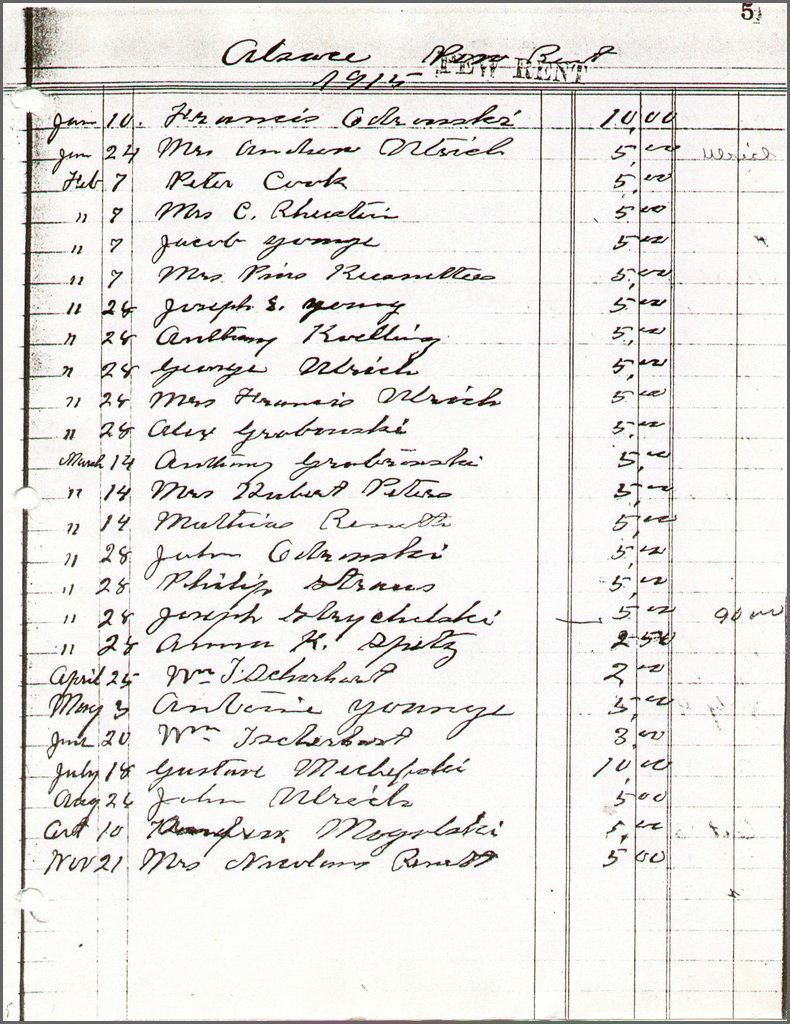 51
Alsace Pew Rent
PEW RENT
1915
Jan 10. Francis Odronski 10.00
Jan 24 Mrs Andrew Ulrich 5.00 Ulrich
Feb 7 Peter Cook 5.00
" 7 Mrs C. 5.00
" 7 Jacob Younge 5.00
" 7 Mrs Pius 5.00
" 28 Joseph S. Young 5.00
" 28 Anthony Kvelling 5.00
" 28 George Ulrich 5.00
" 28 Mrs Francis Ulrich 5.00
" 28 Alex Grabowski 5.00
March 14 Anthony Grabowski 5.00
" 14 Mrs Hubert Peters 5.00
" 14 Mathias 5.00
" 28 John Odronski 5.00
" 28 Philip Straus 5.00
" 28 Joseph Strychalski 5.00 90 00
" 28 Anna K. Spitz 2 50
April 25 Wm Tscherhart 2.00
May 3 Antoine Younge 5.00
Jun 20 Wm Tscherhart 3.00
July 18 Gustave 10.00
Aug 26 John Ulrich 5 00
Oct 10 Mogolski 5.00
Nov 21 Mrs Nicolaus 5 00